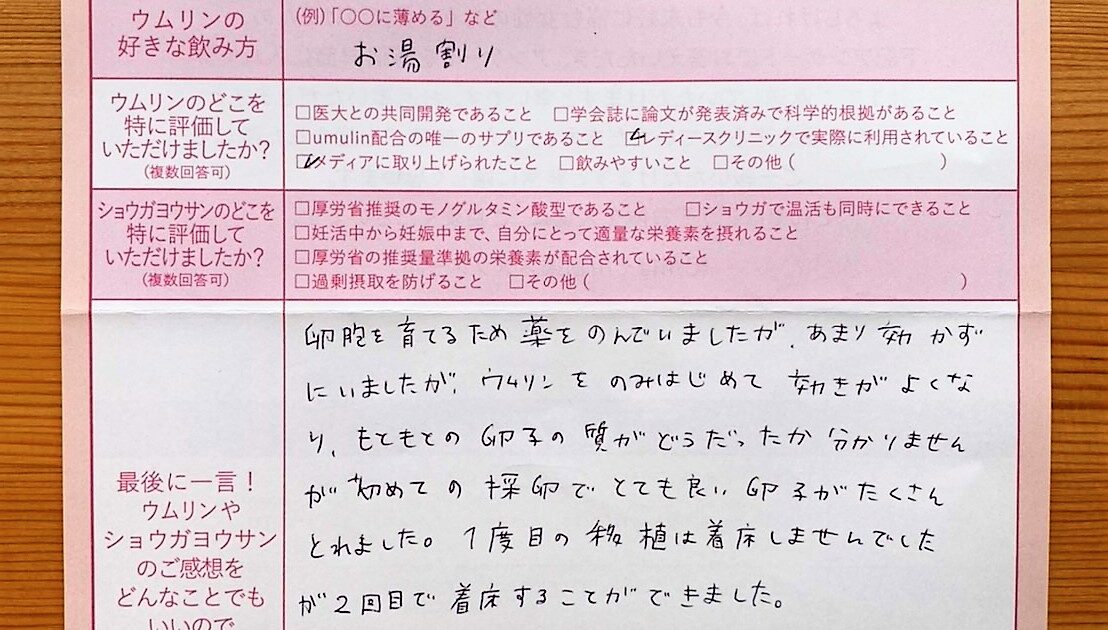 ウムリンの
好きな飲み方
(例)「〇〇に薄める」など
お湯割り
ウムリンのどこを
特に評価して
いただけましたか?
(複数回答可)
□医大との共同開発であること □学会誌に論文が発表済みで科学的根拠があること
□umulin配合の唯一のサプリであること ☑レディースクリニックで実際に利用されていること
☑メディアに取り上げられたこと □飲みやすいこと □その他( )
ショウガヨウサンのどこを
特に評価して
いただけましたか?
(複数回答可)
□厚労省推奨のモノグルタミン酸型であること □ショウガで温活も同時にできること
□妊活中から妊娠中まで、自分にとって適量な栄養素を摂れること
□厚労省の推奨量準拠の栄養素が配合されていること
□過剰摂取を防げること □その他( )
最後に一言!
ウムリンや
ショウガヨウサン
のご感想を
どんなことでも
いいので
卵胞を育てるため薬をのんでいましたが、あまり効かず
にいましたが、ウムリンをのみはじめて効きがよくな
り、もともとの卵子の質がどうだったか分かりません
が初めての採卵でとても良い卵子がたくさん
とれました。1度目の移植は着床しませんでした
が2回目で着床することができました。